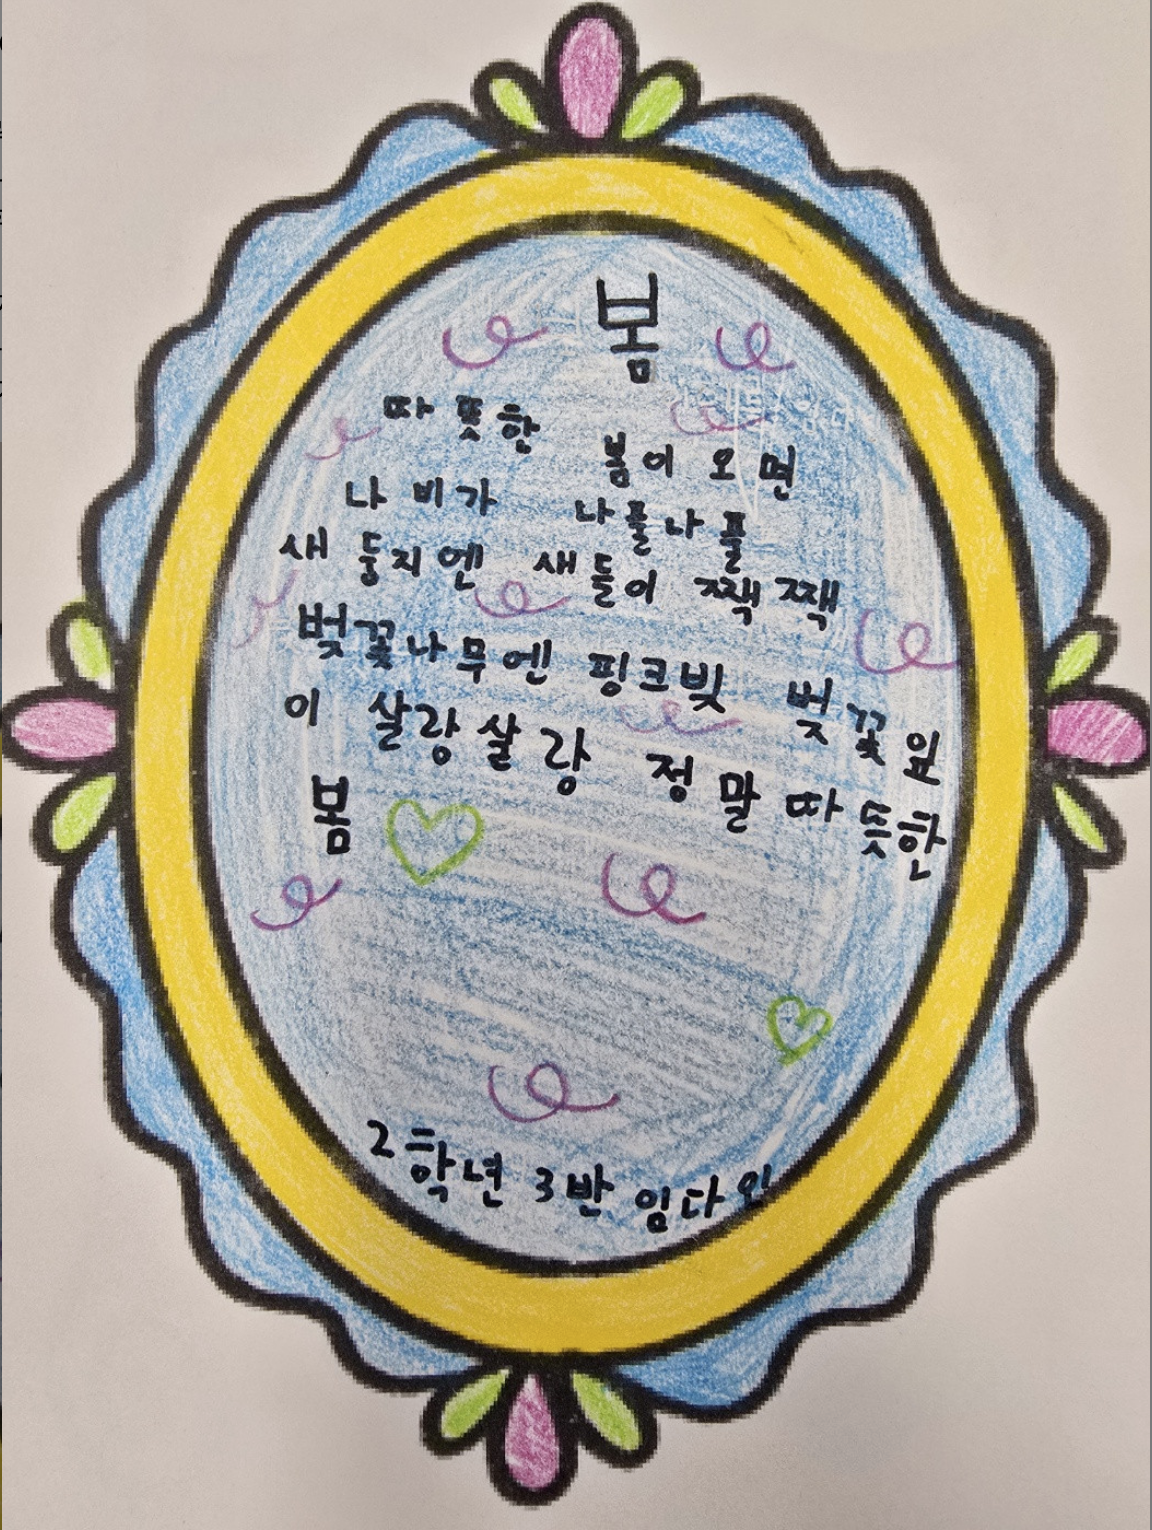 봄
따뜻한 봄이 오면
나비가 나풀나풀
새 둥지엔 새들이 짹짹
벚꽃나무엔 핑크빛 벚꽃잎
이 살랑살랑 정말 따뜻한
봄
2학년 3반 임다인